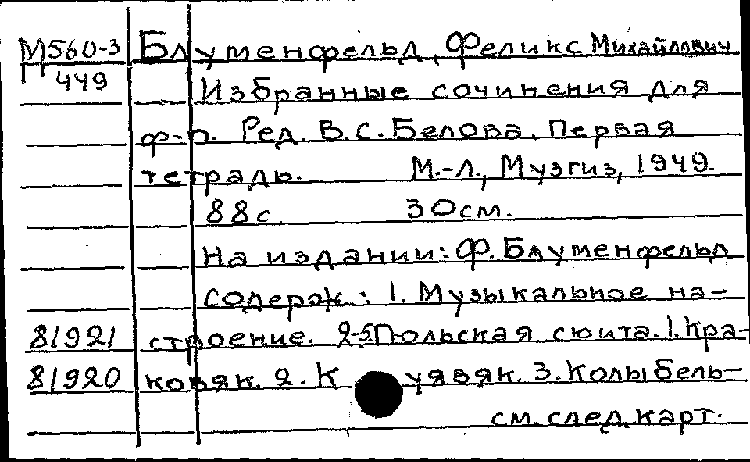 М560-3 Блуменфельд, Феликс Михайлович
П 449 Избранные сочинения для
ф-п. Ред. В.С. Белова. Первая
тетрадь. М.-Л., Музгиз, 1949.
88с. 30см.
На издании: Ф. Блуменфельд
Содерж.: 1. Музыкальное на-
81921 строение. 2-5 Польская сюита. 1. Кра-
81920 ковяк. 2. К уявяк. 3. Колыбель-
см. след. карт.